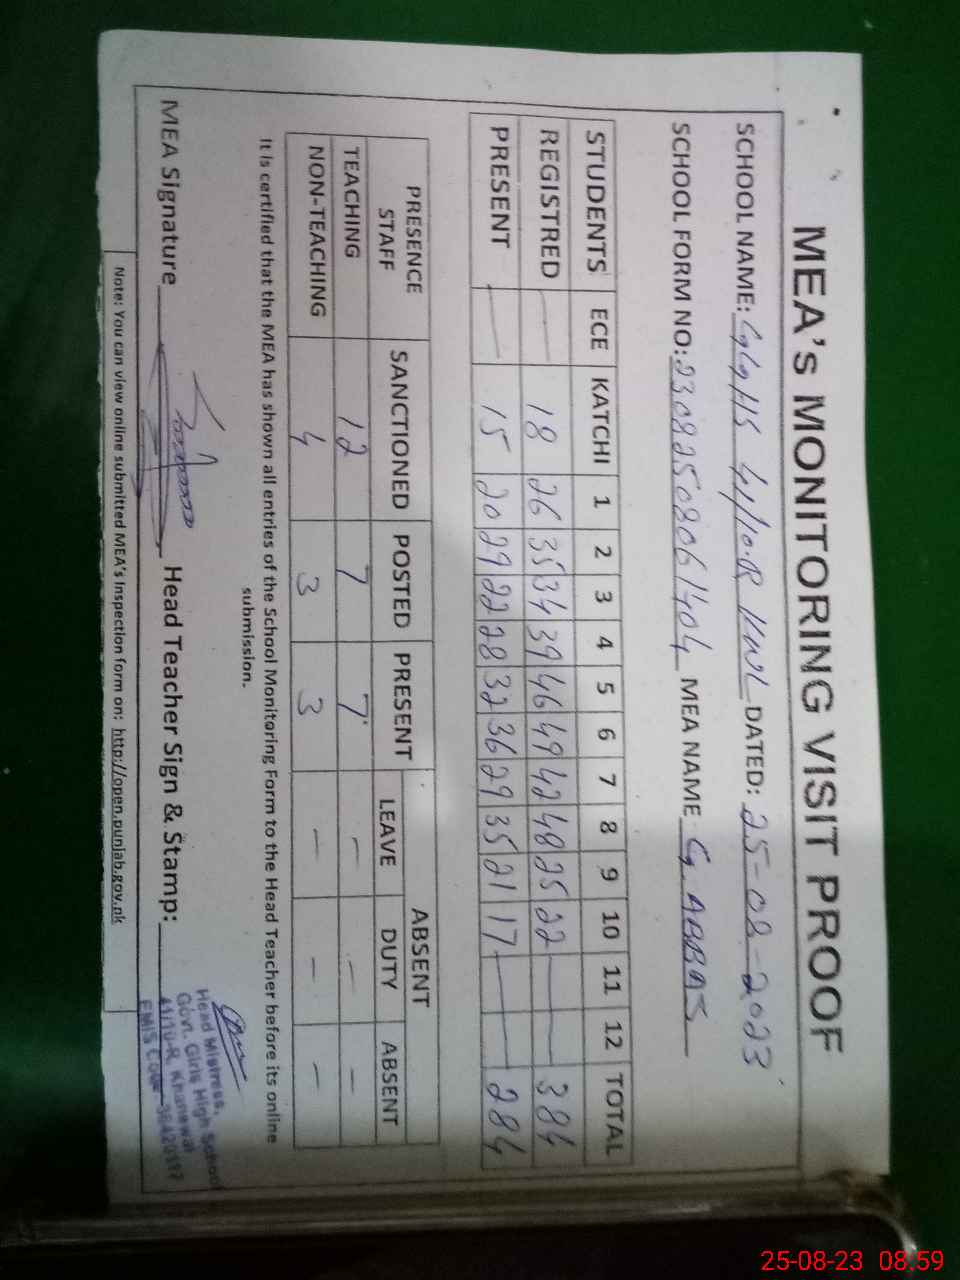 MEA's MONITORING VISIT PROOF
SCHOOL NAME: GGHS 41/10-R KWL DATED: 25-08-2023
SCHOOL FORM NO: 23082508061404 MEA NAME G. ABBAS
STUDENTS ECE KATCHI 1 2 3 4 5 6 7 8 9 10 11 12 TOTAL
REGISTRED — 18 26 35 34 39 46 49 42 48 25 22 — — 384
PRESENT — 15 20 29 22 28 32 36 29 35 21 17 — — 284
PRESENCE STAFF SANCTIONED POSTED PRESENT ABSENT
LEAVE DUTY ABSENT
TEACHING 12 7 7 — — —
NON-TEACHING 4 3 3 — — —
It is certified that the MEA has shown all entries of the School Monitoring Form to the Head Teacher before its online
submission.
MEA Signature Head Teacher Sign & Stamp:
Head Mistress,
Govt. Girls High School
41/10-R, Khanewal
EMIS Code
Note: You can view online submitted MEA's Inspection form on: http://open.punjab.gov.pk
25-08-23 08:59